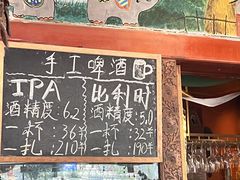 手工啤酒
IPA 比利时
酒精度:6.2 酒精度:5.0
一杯:36羊 一杯:32羊
一扎:210羊 一扎:190羊